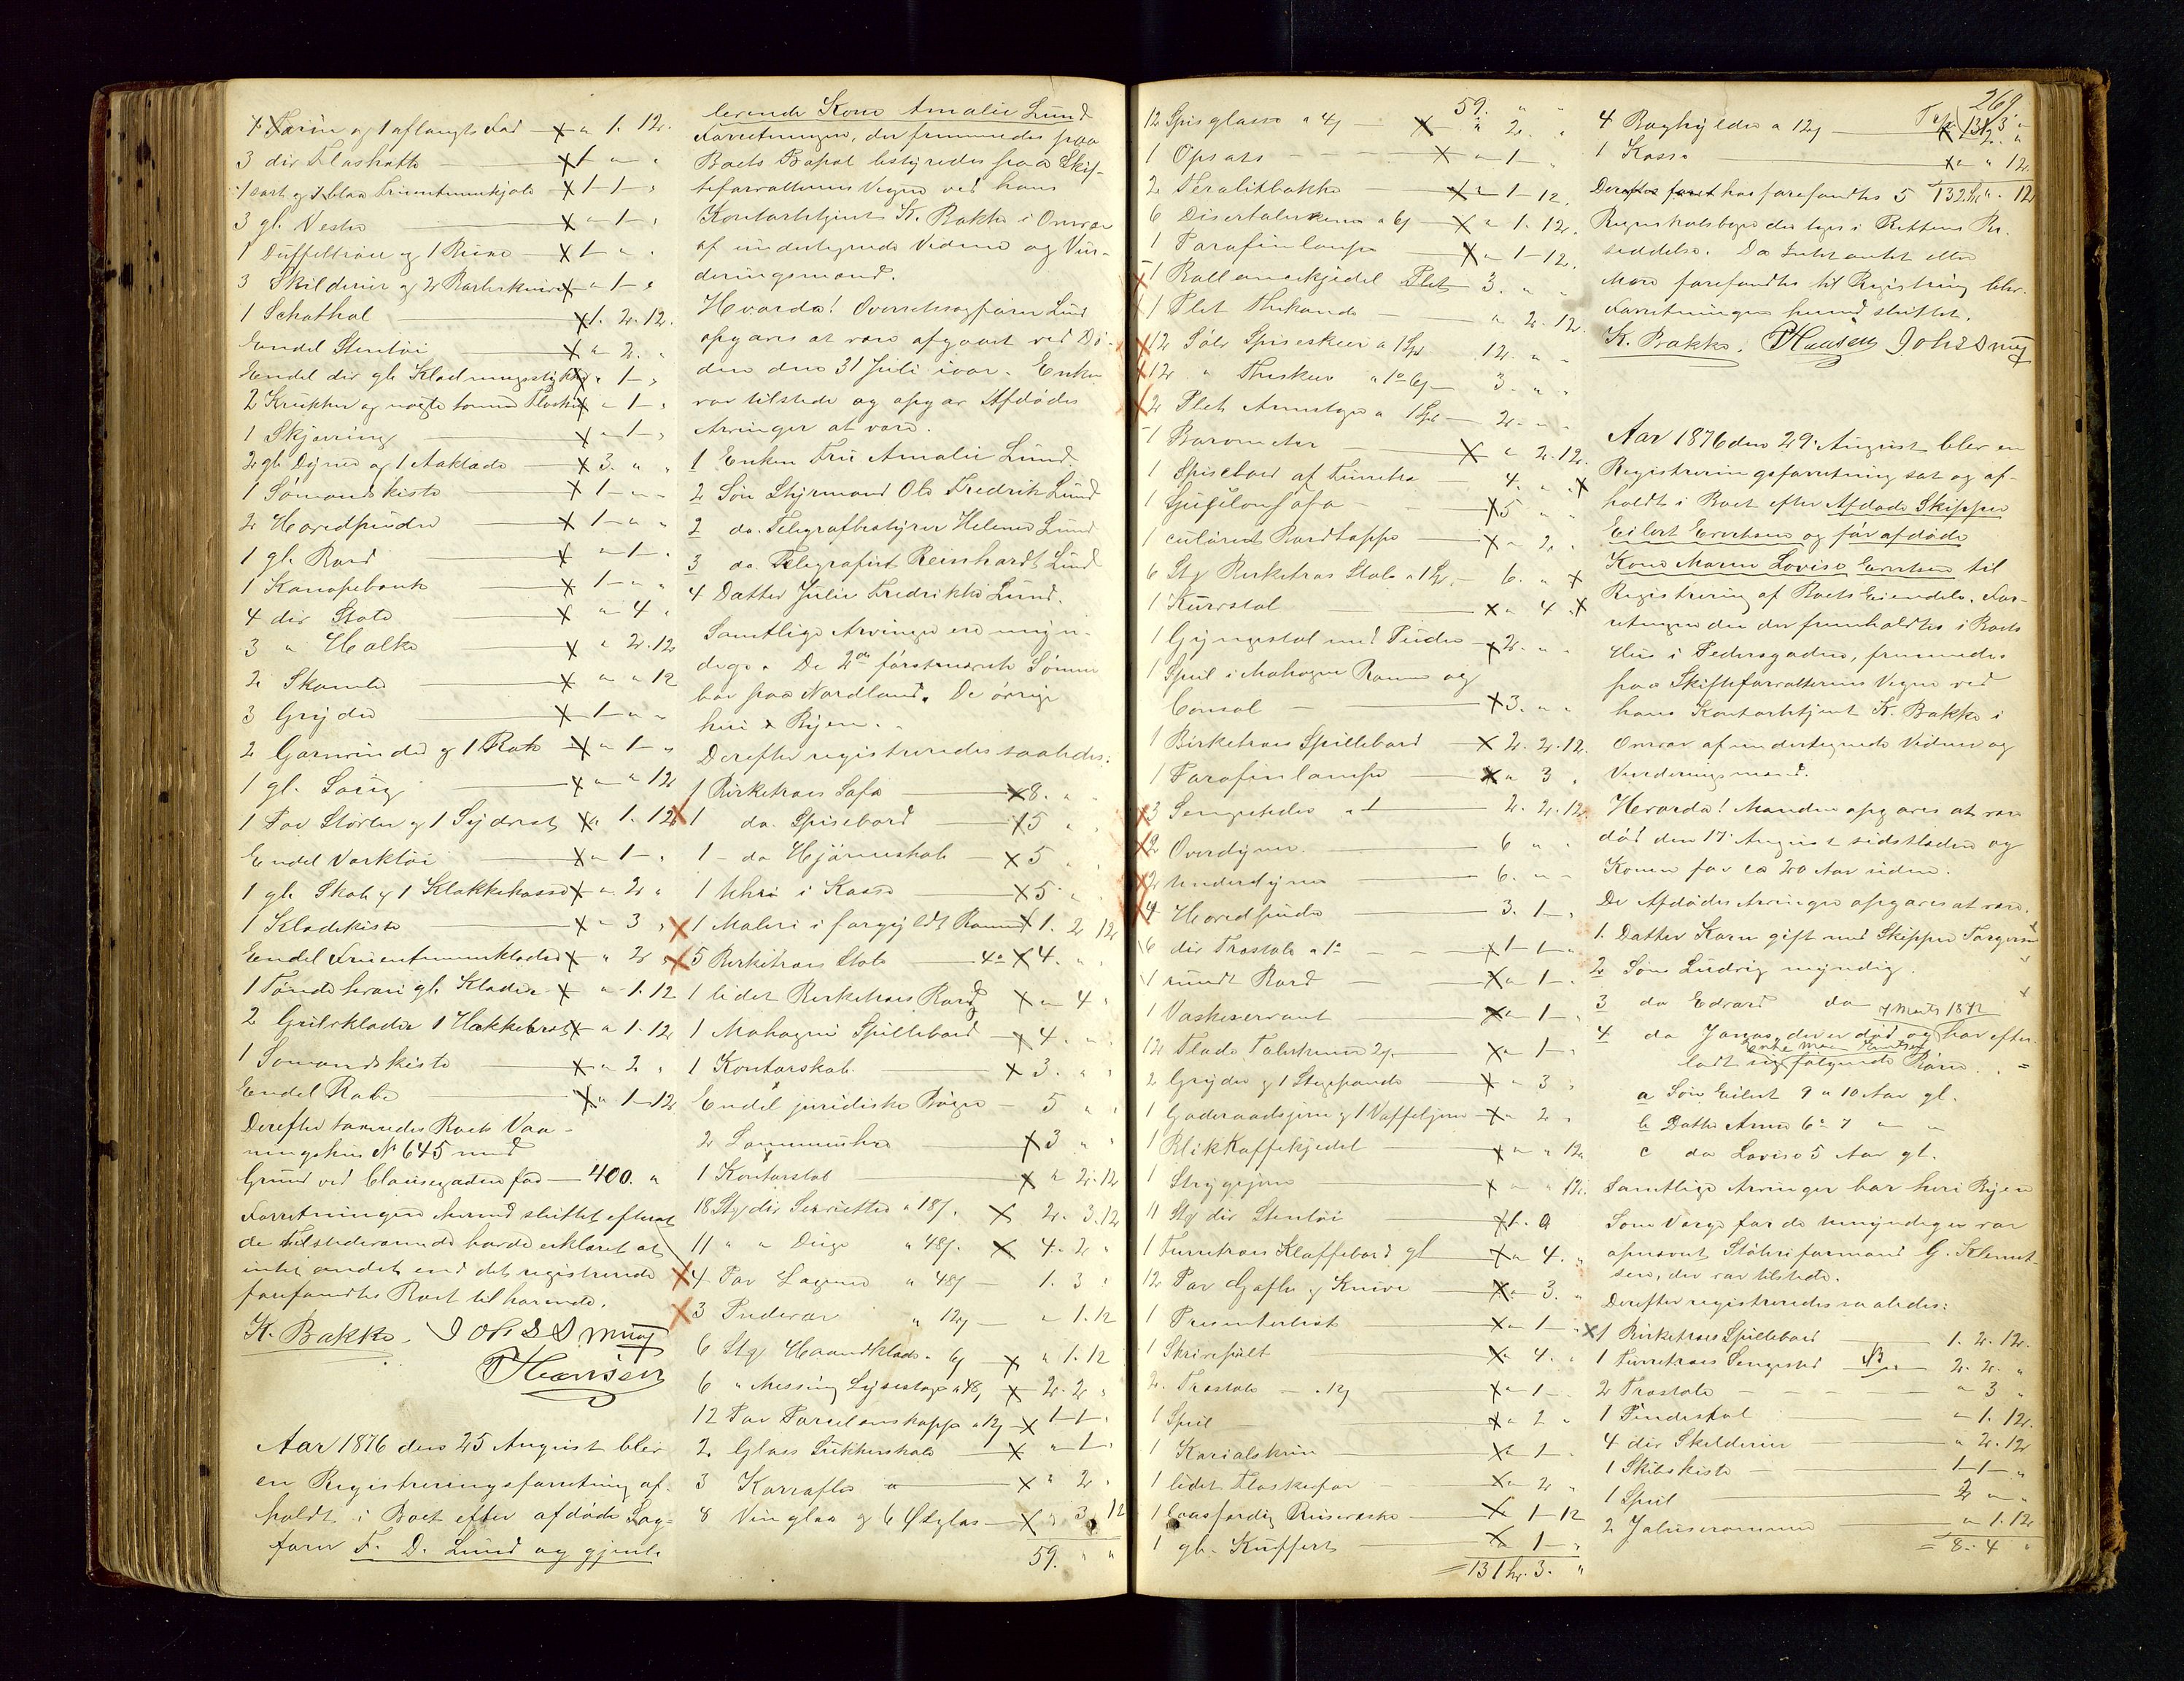 1 Terin og 1 aflangt Fad — " 1. 12.
3 dir Flashatte — 1 " "
1 sort og 1 blaa Fruentimmerkjole 1 – 1 – "
3 gl. Veste — " – 1 – "
1 Duffelstrøie og 1 Buxe — 1 – " "
3 Skilderier og 2 Barberknive " – 1 – "
1 Schathol — 1. 2. 12.
Endel Stentøi — " 2. "
Endel dir gl. Klædningsstykker " 1 – "
2 Krukker og nogle tomme Flasker " – 1 – "
1 Skjærring — " – 1 – "
2 gl. Dyner og 1 Aaklæde — 3. " "
1 Sømandskiste — 1 – " – "
2 Hovedpuder — 1 – " "
1 gl. Bord — " – 1 – "
1 Kanapebænk — 1 – " "
4 dir Stole — " 4 "
3 " Halke — " 2. 12
2 Skamler — " " 12
3 Gryder — 1 – " "
2 Garnvinder og 1 Rok — " 1 – "
1 gl. Loug — " " 12
1 Par Støvler og 1 Sydvest " 1. 12
Endel Værktøi — " – 1 – "
1 gl. Skab og 1 Klokkekasse " 2 "
1 Klædekiste — " 3 "
Endel Fruentimmerklæder " 2 "
1 Tønde hvori gl. Klæder " – 1. 12
2 Gulvklæder 1 Hakkebræt " 1 – 12
1 Sømandskiste — " 2 "
Endel Rabe — " 1 – 12
Derefter taxeredes Boets Vaa-
ningshus No 645 med
Grund ved Clausegaden for — 400. "
Forretningen dermed sluttet efterat
de Tilstedeværende havde erklæret at
intet andet end det registrerede
forefandtes Boet tilhørende.
K. Bakke. Joh. S Smug
P Hansen
Aar 1876 den 25 August blev
en Registreringsforretning af-
holdt i Boet efter afdøde Sag-
fører F. D. Lund og gjenle-
levende Kone Amalie Lund
Forretningen, der fremmedes paa
Boets Bopæl bestyredes paa Skif-
teforvalterens Vegne ved hans
Kontorbetjent K. Bakke i Overvær
af undertegnede Vidner og Vur-
deringsmænd.
Hvorda! Overretssagfører Lund
opgaves at være afgaaet ved Dø-
den den 31 Juli ivar. Enken
var tilstede og opgav Afdødes
Arvinger at være.
1 Enken Fru Amalie Lund
2 Søn Styrmand Ole Fredrik Lund
2 do. Telegrafbestyrer Helmer Lund
3 do. Telegrafist Reinhardt Lund
4 Datter Julie Fredrikke Lund.
Samtlige Arvinger ere myn-
dige. De 2de førstnævnte Sønner
bor paa Nordland. De øvrige
her i Byen.
Derefter registreredes saaledes:
1 Birketræes Sofa — 8. "
1 do. Spisebord — 5 "
1 – do Hjørneskab — 5
1 Uhr i Kasse — 5
1 Maleri i forgyldt Ramme 1. 2 12
5 Birketræes Stole — 4 4. "
1 lidet Birketræes Bord " 4 "
1 Mahogni Spillebord — 4. "
1 Kontorskab — 3. " "
Endel juridiske Bøger — 5 " "
2 Lommeuhre — 3 " "
1 Kontorstol — " 2. 12
18 Stk dir Servietter a 18/. 2. 3. 12
11 " " Duge " 48/. 4. 2 "
4 Par Lagener " 48/ — 1. 3 "
3 Pudevar " 12/ — " 1. 12
6 Stk Haandklæder " 6/ " 1. 12
6 " Messing Lysestager a 48/ 2. 2 "
12 Par Porcelænskopper a 12/ 1 – 1 "
2 Glaes Sukkerskaale — " 1 "
3 Karafler — " 2 "
8 Vinglas og 6 Ølglas — " 3. 12
59. " "
59. " "
12 Spisglasse a 4/ " 2. "
1 Opsats — " – 1 – "
2 Teralitbakke — " – 1 – 12
6 Desertalerkener a 6/ " 1. 12.
1 Parafinlampe — " – 1 – 12.
1 Ballancekjedel Plet 3. " "
1 Plet Thekande — " 2. 12.
12 Sølv Spiseskeer a 1 Spd 12. " "
12 " Theskeer " 3. " "
2 Plet Armstager a 1 Spd 2. " "
1 Barometer — " 2. 12.
1 Spisebord af Furutræ — 4. " "
1 — 5
1 — Bordlappe — " 2. "
6 Stk Birketræs Stole a 1 Sp. 6. " "
1 Kurvstol — " 4 "
1 Gyngestol med Pude — 2. " "
1 Speil i Mahogne Ramme og
Consol — 3. " "
1 Birketræes Spillebord — 2. 2. 12.
1 Parafinlampe — " 3 "
3 Sengesteder a 1 — 2. 2. 12
2 Overdyner — 6 " "
2 Underdyner — 6. " "
4 Hovedpuder — 3. 1 – "
6 dir Træstole — 1 – 1 – "
1 rundt Bord — " 1 – "
1 Vaskeservant — " 1 – "
12 Flade Talerkener 2/. " 1 – "
2 Gryder og 1 Stegepande — " 3 "
1 Goderaadsjern og 1 Vaffeljern " 2 "
1 Blik Kaffekjedel — " " 12
1 Strygejern — " 12.
11 Stk dir Stentøi — 1. 0
1 Furutræes Klaffebord gl " 4. "
12 Par Gafler og Knive — " 3. "
1 Præsenterbræt — " 1 – "
1 Skrivepult — " 4. "
2. Træstole — a 12/ " 1 – "
1 Speil — " 2 "
1 Karialskrin — " 1 – "
1 lidet Flaskefor — " 2 "
1 laasfærdig Reisevæske — " 1 – 12
1 gl. Kuffert — " 1 – "
= 131 hr. 3. "
269.
4 Boghylder a 12/ Tsp. 131 3 "
" 2. "
1 Kasse — " " 12
Derefter foret hos forefandtes 5 132. hr. " 12
Regnskabsbøger der toges i Rettens Be-
siddelse. Da Intet andet eller
Mere forefandtes til Registrering blev
Forretningen hermed sluttet.
K. Bakke. P Hansen Joh S Smug
Aar 1876 den 29. August blev en
Registreringsforretning sat og af-
holdt i Boet efter Afdøde Skipper
Eilert Evertsen og før afdøde
Kone Maren Lovise Evertsen til
Registrering af Boets Eiendele. For-
retningen der der fremholdtes i Boets
Hus i Pedersgaden, fremmedes
paa Skifteforvalterens Vegne ved
hans Kontorbetjent K. Bakke i
Overvær af undertegnede Vidner og
Vurderingsmænd.
Hvorda! Manden opgaves at være
død den 17 August sidstleden og
Konen for ca 20 Aar siden.
De Afdødes Arvinger opgaves at være.
1. Datter Karen gift med Skipper Torgersen
2 Søn Ludvig myndig.
3 do Edvard do
7 Marts 1872
4 do Jonas, der er død og har efter-
ladt sig følgende Børn.
a Søn Eilert 9 a 10 Aar gl.
b Datter Anna 6 a 7 " "
c do Lovise 5 Aar gl.
Samtlige Arvinger bor her i Byen
Som Værge for de umyndige var
opnævnt Støberiformand G. Klemet-
sen, der var tilstede.
Derefter registreredes saaledes:
1 Birketraes Spillebord — 1. 2. 12.
1 Furretraes Sengested — 2. 2. "
2 Træstole — " 3 "
1 Pindestol — " 1. 12.
4 dir Skilderier — " 2. 12
1 Skibskiste — 1 – 1 – "
1 Speil — 2 " "
2 Jalusirammer — " 1. 12
= 8. 4 "